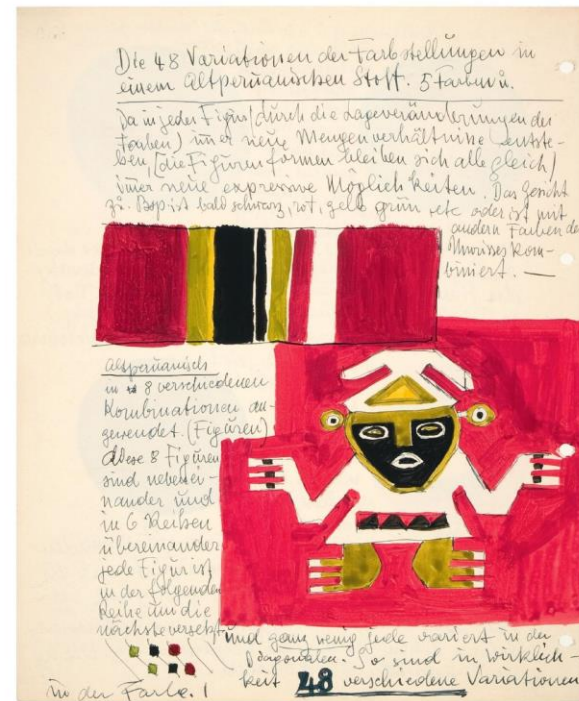 Die 48 Variationen der Farbstellungen in
einem Altperuanischen Stoff. 5 Farben u.
Da in jeder Figur (durch die Lageveränderungen der
Farben) immer neue Mengenverhältnisse entste-
hen, (die Figurenformen bleiben sich alle gleich)
immer neue expressive Möglichkeiten. Das Gesicht
z. Bsp ist bald schwarz, rot, gelb grün etc oder ist mit
andern Farben des
Umrisses kom-
biniert. —
Altperuanisch
in 8 verschiedenen
Kombinationen an-
gewendet. (Figuren)
diese 8 Figuren
sind nebenei-
nander und
in 6 Reihen
übereinander
jede Figur ist
in der folgenden
Reihe um die
nächste versetzt
und ganz wenig jede variiert in den
Diagonalen. So sind in Wirklich-
keit 48 verschiedene Variationen
in der Farbe. !